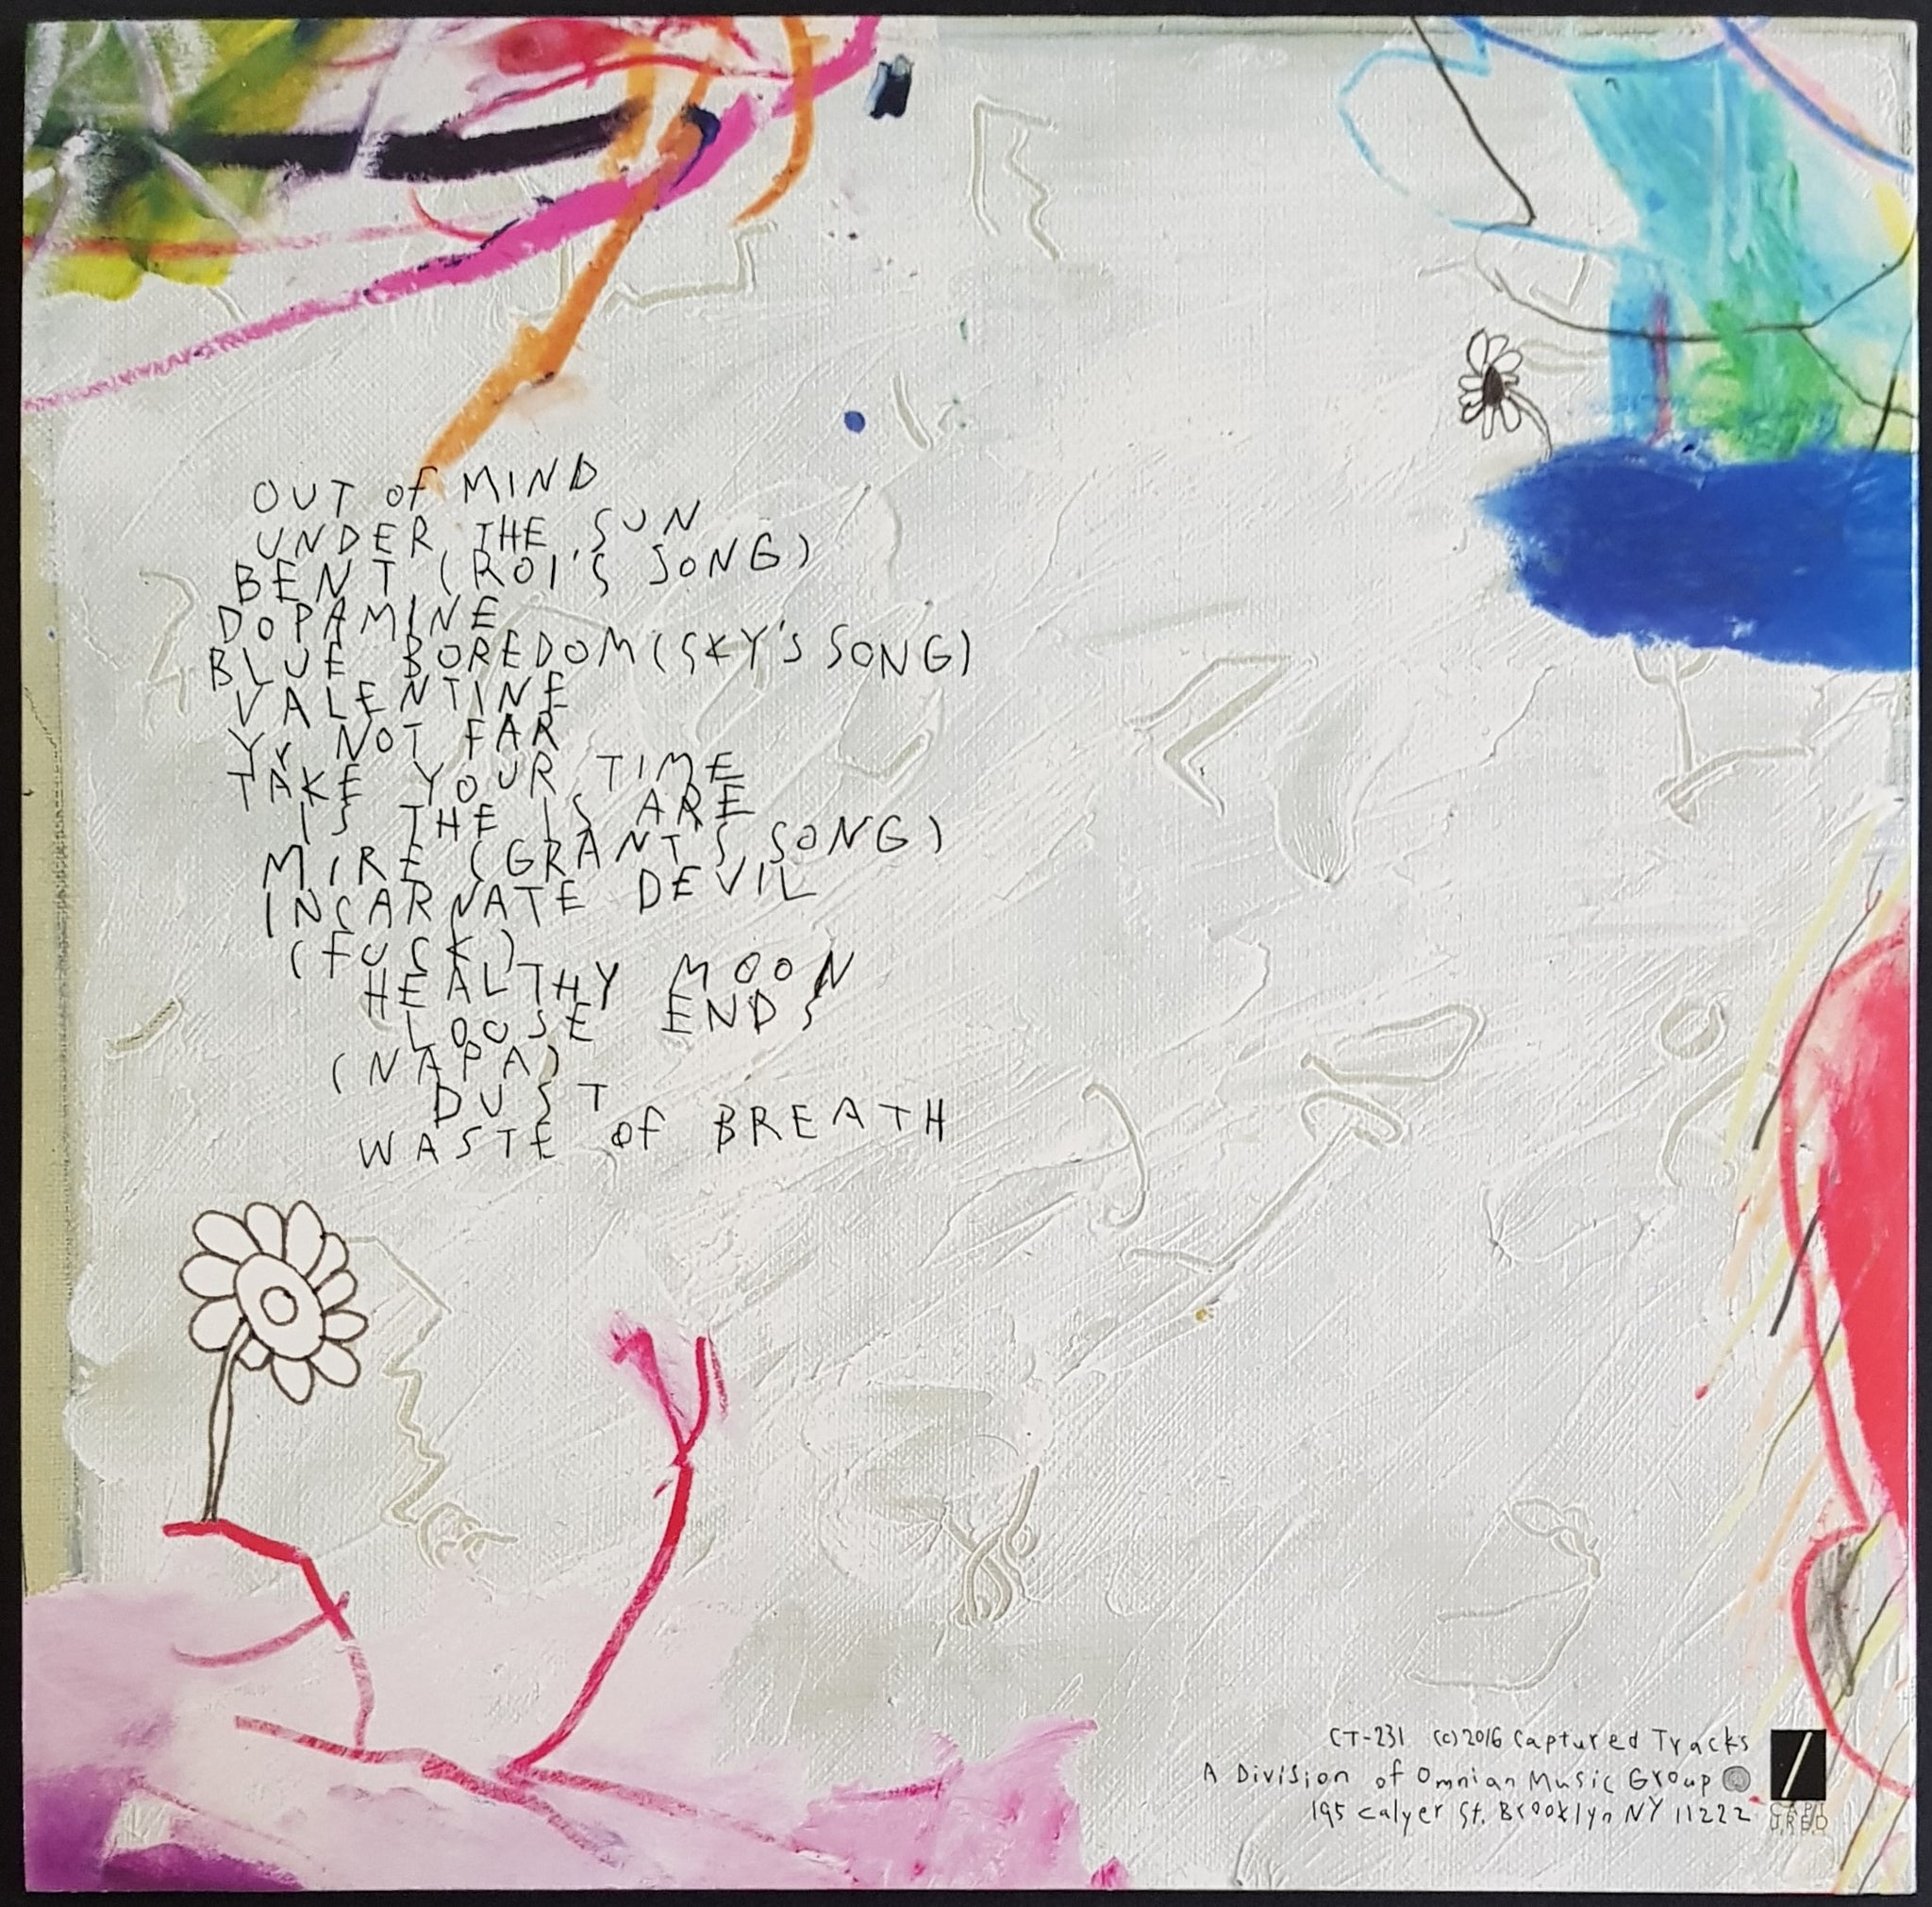 OUT Of MIND
UNDER THE SUN
BENT (ROI'S SONG)
DOPAMINE
BLUE BOREDOM (SKY'S SONG)
VALENTINE
Yr NOT FAR
TAKE YOUR TIME
IS THE IS ARE
MIRE (GRANT'S SONG)
INCARNATE DEVIL
(FUCK)
HEALTHY MOON
LOOSE ENDS
(NAPA)
DUST
WASTE Of BREATH
CT-231 (c) 2016 Captured Tracks
A Division of Omnian Music Group
195 Calyer St. Brooklyn NY 11222
CAPT
URED